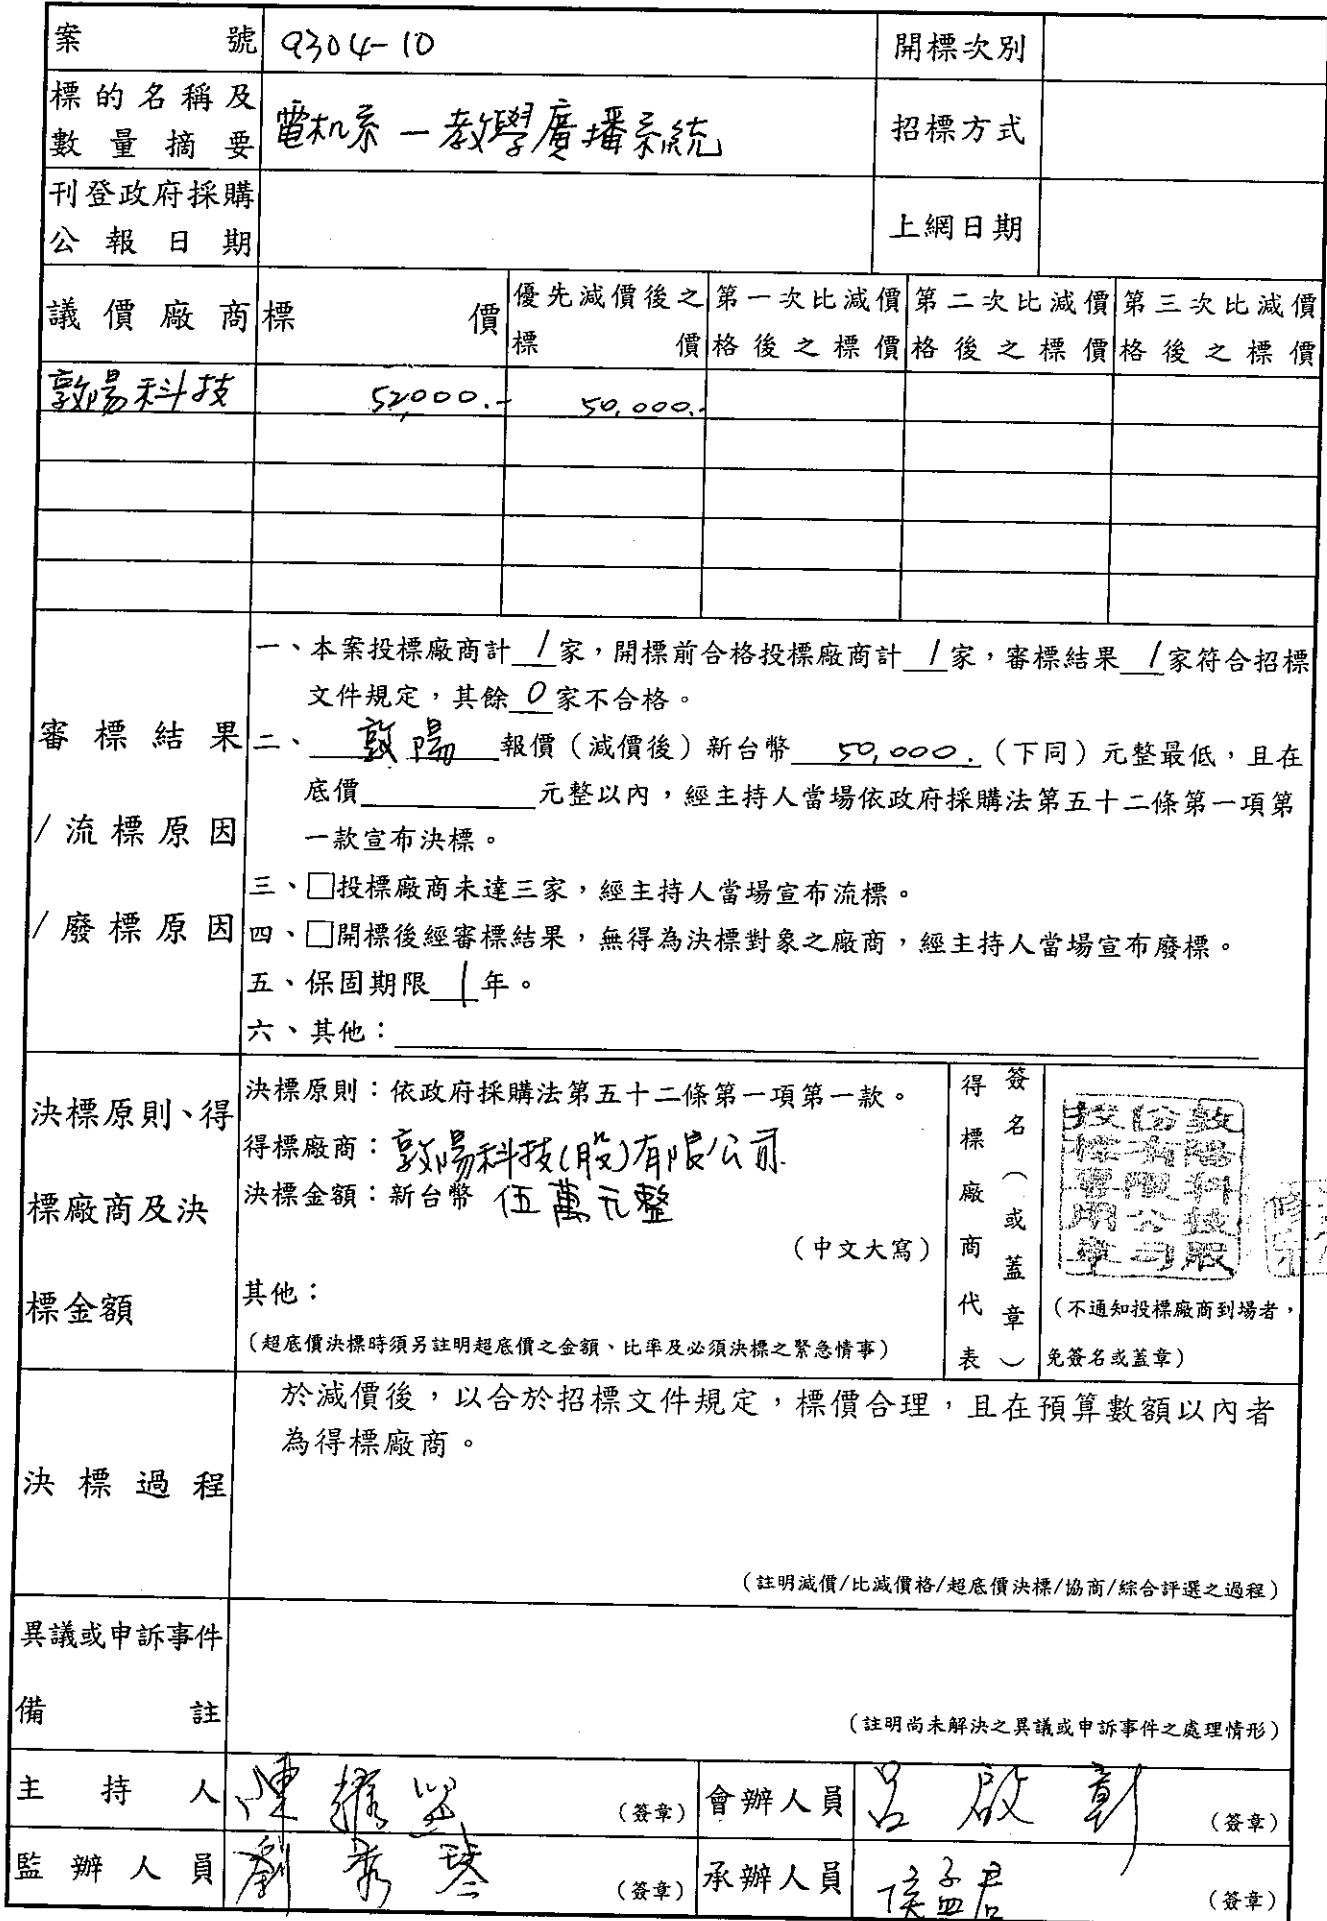 案號 9304-10 開標次別
標的名稱及
數量摘要 電机系－教學廣播系統 招標方式
刊登政府採購
公報日期 上網日期
議價廠商 標價 優先減價後之標價 第一次比減價格後之標價 第二次比減價格後之標價 第三次比減價格後之標價
敦陽科技 52,000.- 50,000.-
審標結果
/流標原因
/廢標原因
一、本案投標廠商計1家，開標前合格投標廠商計1家，審標結果1家符合招標
文件規定，其餘0家不合格。
二、敦陽報價（減價後）新台幣50,000.（下同）元整最低，且在
底價 元整以內，經主持人當場依政府採購法第五十二條第一項第
一款宣布決標。
三、□投標廠商未達三家，經主持人當場宣布流標。
四、□開標後經審標結果，無得為決標對象之廠商，經主持人當場宣布廢標。
五、保固期限1年。
六、其他：
決標原則、得
標廠商及決
標金額
決標原則：依政府採購法第五十二條第一項第一款。
得標廠商：敦陽科技(股)有限公司
決標金額：新台幣 伍萬元整
（中文大寫）
其他：
（超底價決標時須另註明超底價之金額、比率及必須決標之緊急情事）
得標廠商代表
簽名（或蓋章）
敦陽科技股
份有限公司
投標專用章
（不通知投標廠商到場者，
免簽名或蓋章）
決標過程
於減價後，以合於招標文件規定，標價合理，且在預算數額以內者
為得標廠商。
（註明減價/比減價格/超底價決標/協商/綜合評選之過程）
異議或申訴事件
備註
（註明尚未解決之異議或申訴事件之處理情形）
主持人 陳 （簽章） 會辦人員 呂啟彰 （簽章）
監辦人員 劉秀琴 （簽章） 承辦人員 侯孟君 （簽章）